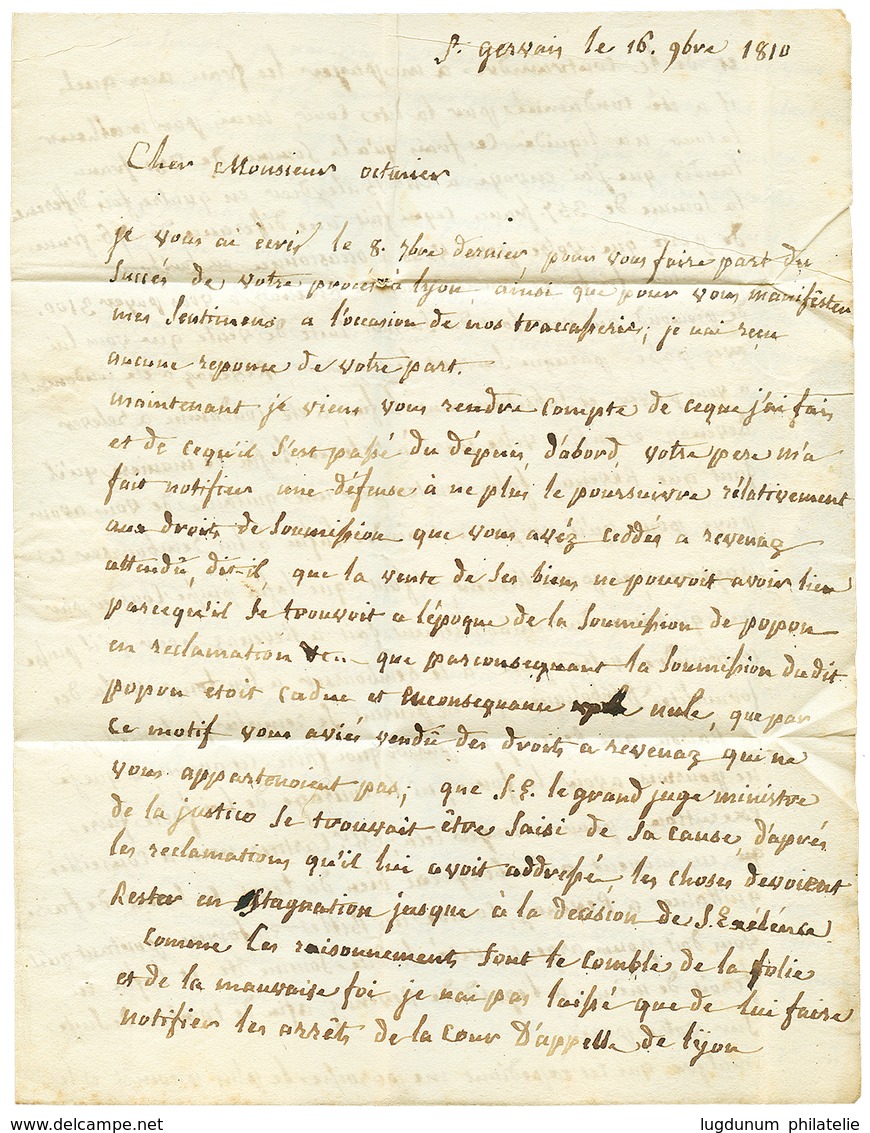 St. gervais le 16. 9bre 1810
Cher Monsieur octnier
je vous ai ecris le 8. 7bre dernier pour vous faire part du
succés de votre procés à lyon, ainsi que pour vous manifester
mes sentimens a l'occasion de nos tracasseries; je n'ai reçu
aucune reponse de votre part.
maintenant je viens vous rendre compte de ceque j'ai fais
et de cequ'il s'est passé du dépuis, d'abord, votre pere m'a
fait notifier une défense à ne plus le poursuivre rélativement
aux droits de soumission que vous avéz ceddés a revenaz
attendû, dit-il, que la vente de ses biens ne pouvoit avoir lieu
parcequ'il se trouvoit a l'époque de la soumission de popon
en reclamation que parconsequant la soumission dudit
popon etoit caduc et enconsequance nule, que par
ce motif vous aviés vendû des droits a revenaz qui ne
vous appartenoient pas; que S.E. le grand juge ministre
de la justice se trouvait être saisi de sa cause d'aprés
les reclamations qu'il lui avoit addressé, les choses devoient
Rester en stagnation jusque à la decision de S. Exélénce
Comme Ces raisonnements sont le comble de la folie
et de la mauvaise foi je n'ai pas laissé que de lui faire
notifier les arrêts de la cour D'appelle de lyon
lugdunum philatelie